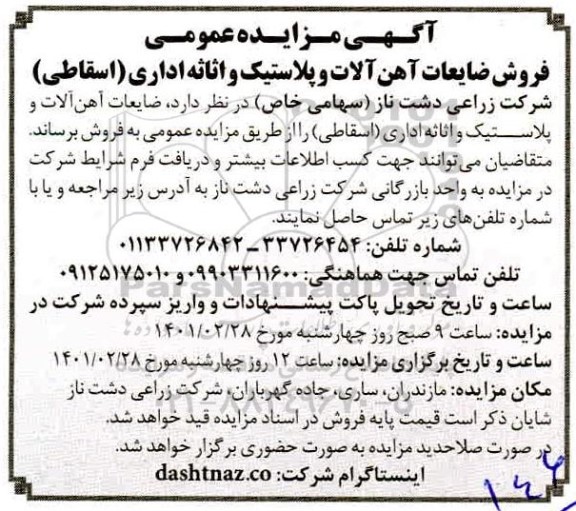 آگهی مزایده عمومی
فروش ضایعات آهن آلات و پلاستیک و اثاثه اداری (اسقاطی)
شرکت زراعی دشت ناز (سهامی خاص) در نظر دارد، ضایعات آهن آلات و
پلاستیک و اثاثه اداری (اسقاطی) را از طریق مزایده عمومی به فروش برساند.
متقاضیان می توانند جهت کسب اطلاعات بیشتر و دریافت فرم شرایط شرکت
در مزایده به واحد بازرگانی شرکت زراعی دشت ناز به آدرس زیر مراجعه و یا با
شماره تلفن های زیر تماس حاصل نمایند.
شماره تلفن: ۳۳۷۲۶۴۵۴ ـ ۰۱۱۳۳۷۲۶۸۴۲
تلفن تماس جهت هماهنگی: ۰۹۹۰۳۳۱۱۶۰۰ و ۰۹۱۲۵۱۷۵۰۱۰
ساعت و تاریخ تحویل پاکت پیشنهادات و واریز سپرده شرکت در
مزایده: ساعت ۹ صبح روز چهارشنبه مورخ ۱۴۰۱/۰۲/۲۸
ساعت و تاریخ برگزاری مزایده: ساعت ۱۲ روز چهارشنبه مورخ ۱۴۰۱/۰۲/۲۸
مکان مزایده: مازندران، ساری، جاده گهرباران، شرکت زراعی دشت ناز
شایان ذکر است قیمت پایه فروش در اسناد مزایده قید خواهد شد.
در صورت صلاحدید مزایده به صورت حضوری برگزار خواهد شد.
اینستاگرام شرکت: dashtnaz.co
ParsNamadData